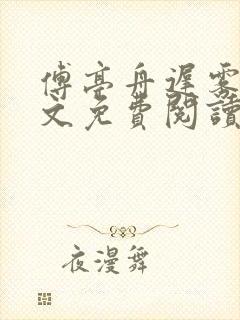 傅亭舟遲霧
文免費閱讀
夜漫舞